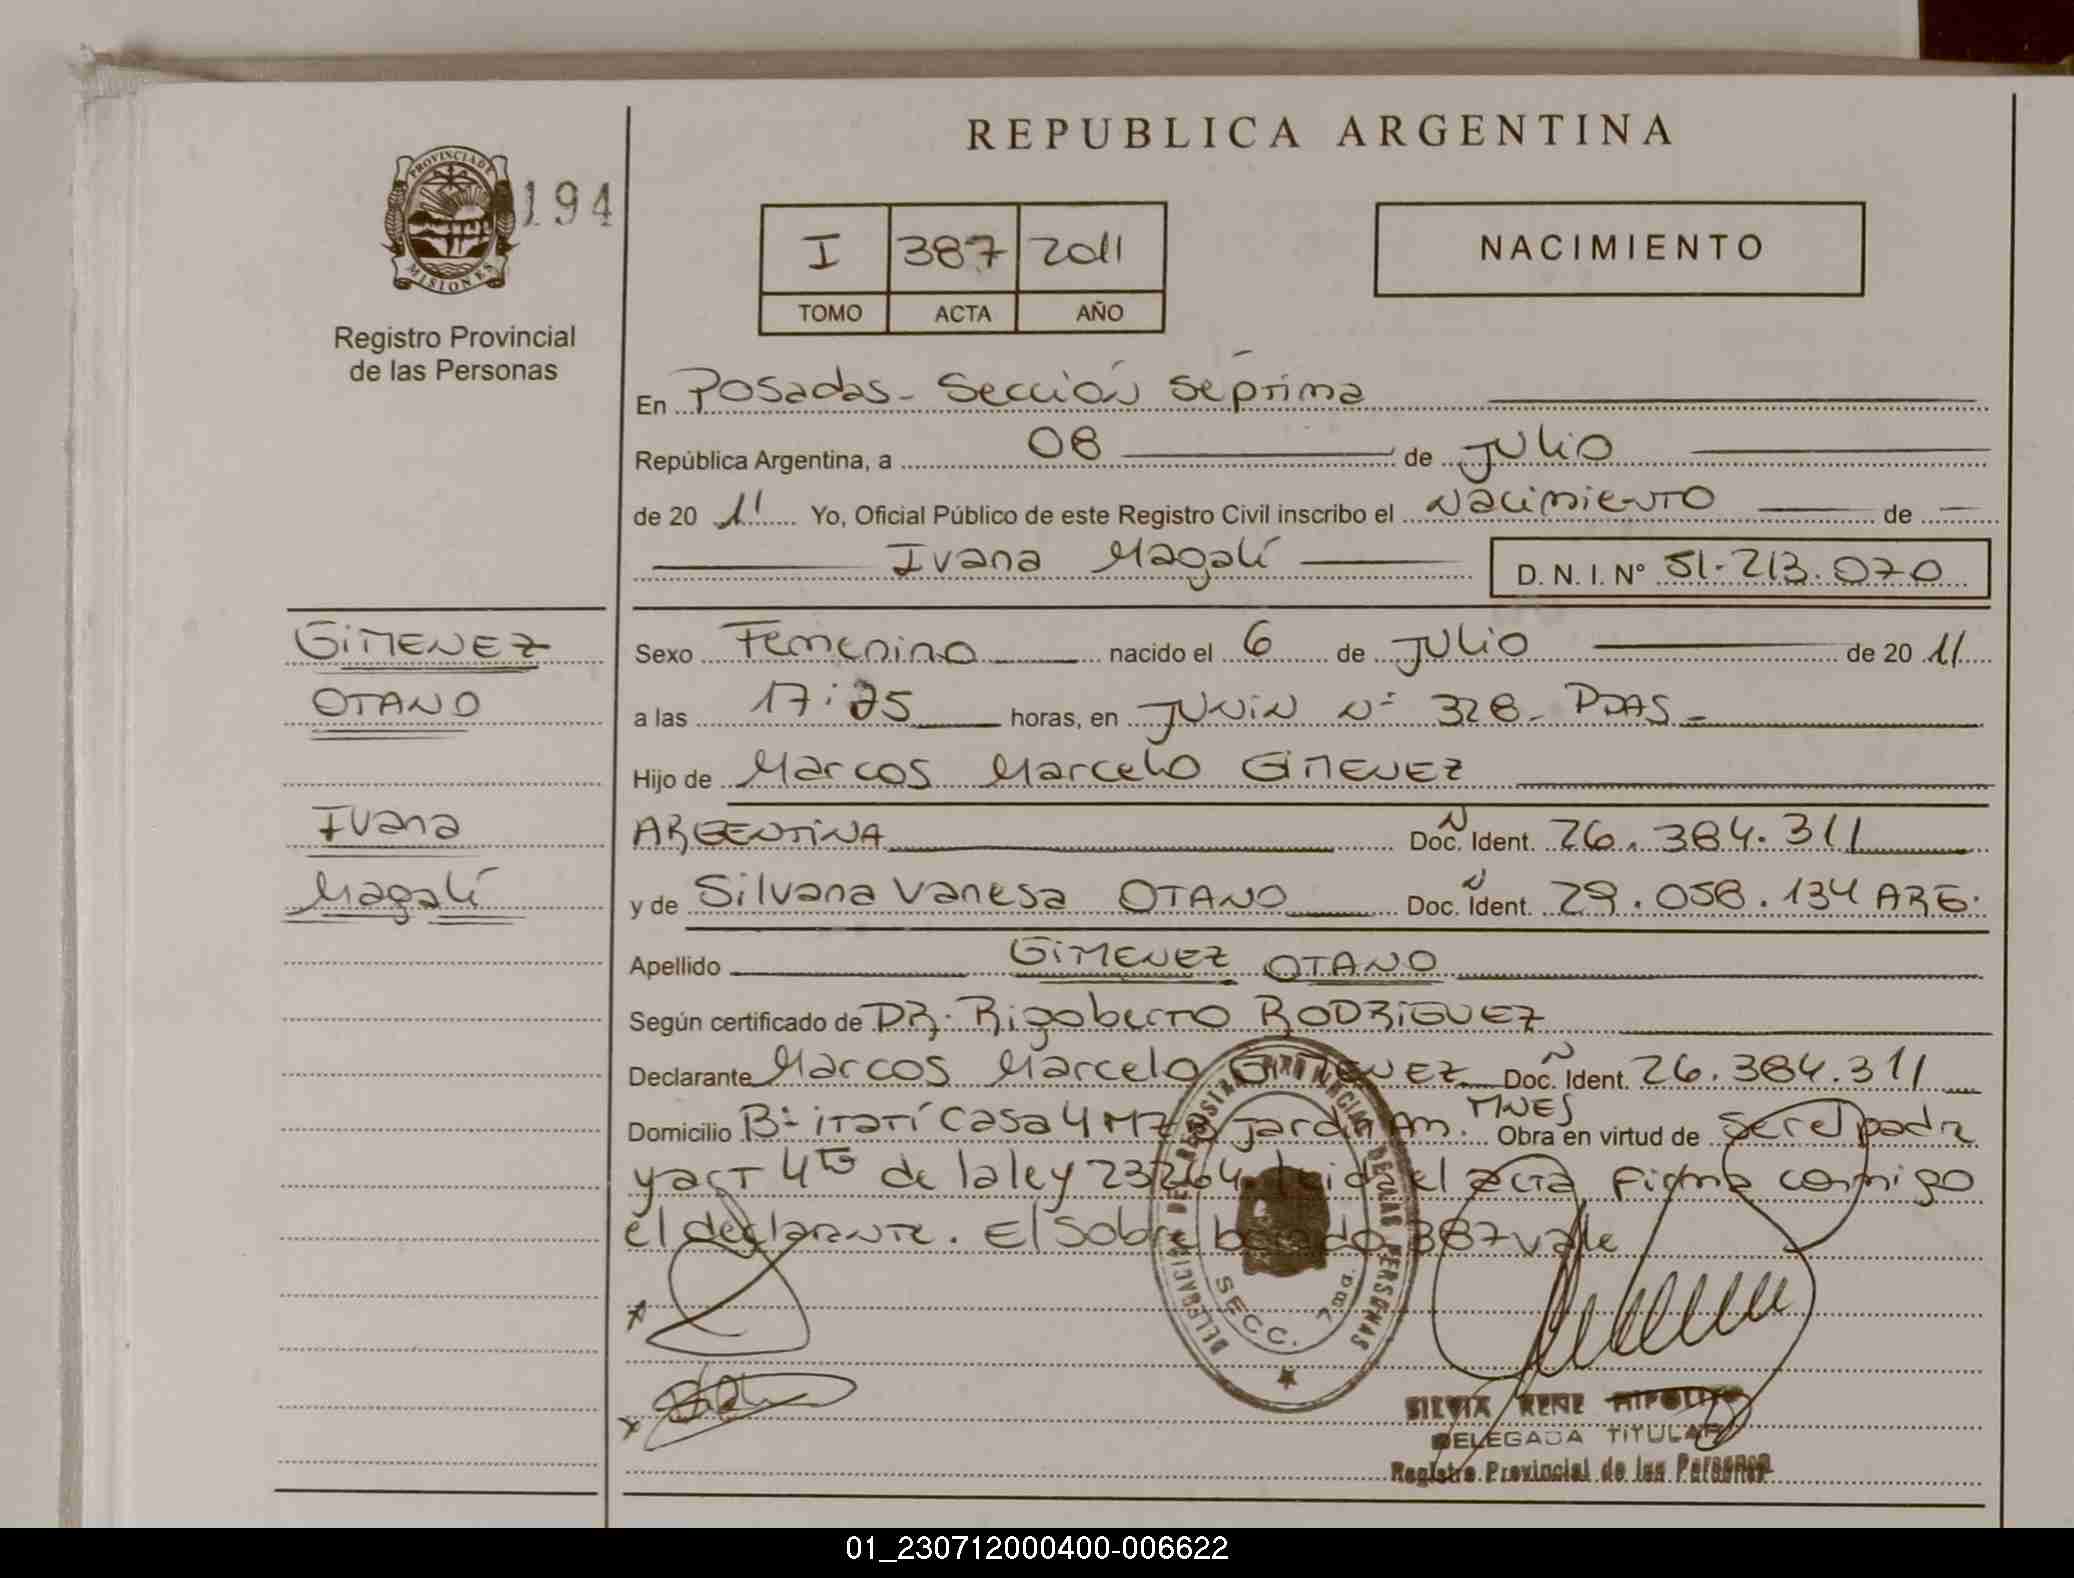 REPUBLICA ARGENTINA
PROVINCIA DE
MISIONES
194
Registro Provincial
de las Personas
I 387 2011
TOMO ACTA AÑO
NACIMIENTO
En Posadas - Sección Séptima
República Argentina, a 08 de Julio
de 20 11 Yo, Oficial Público de este Registro Civil inscribo el Nacimiento de
Ivana Magalí D. N. I. N° 51.213.070
GIMENEZ
OTANO
Ivana
Magalí
Sexo Femenino nacido el 6 de Julio de 20 11
a las 17: horas, en JUNIN N° 328 - PDAS -
Hijo de Marcos Marcelo GIMENEZ
ARGENTINA Doc. N Ident. 26.384.311
y de Silvana Vanesa OTANO Doc. N Ident. 29.058.134 ARG.
Apellido GIMENEZ OTANO
Según certificado de DR. Rigoberto RODRIGUEZ
Declarante Marcos Marcelo GIMENEZ Doc. N Ident. 26.384.311
Domicilio B° itatí Casa 4 MZ Jardin Am. MNES Obra en virtud de ser el padre
y art 4to de la ley 23264 leid el acta, firma conmigo
el declarante. El Sobre borrado 387 vale
DELEGACION DEL REGISTRO PROVINCIAL DE LAS PERSONAS
SECC. 7ma.
SILVIA RENE HIPOLITO
DELEGADA TITULAR
Registro Provincial de las Personas
01_230712000400-006622